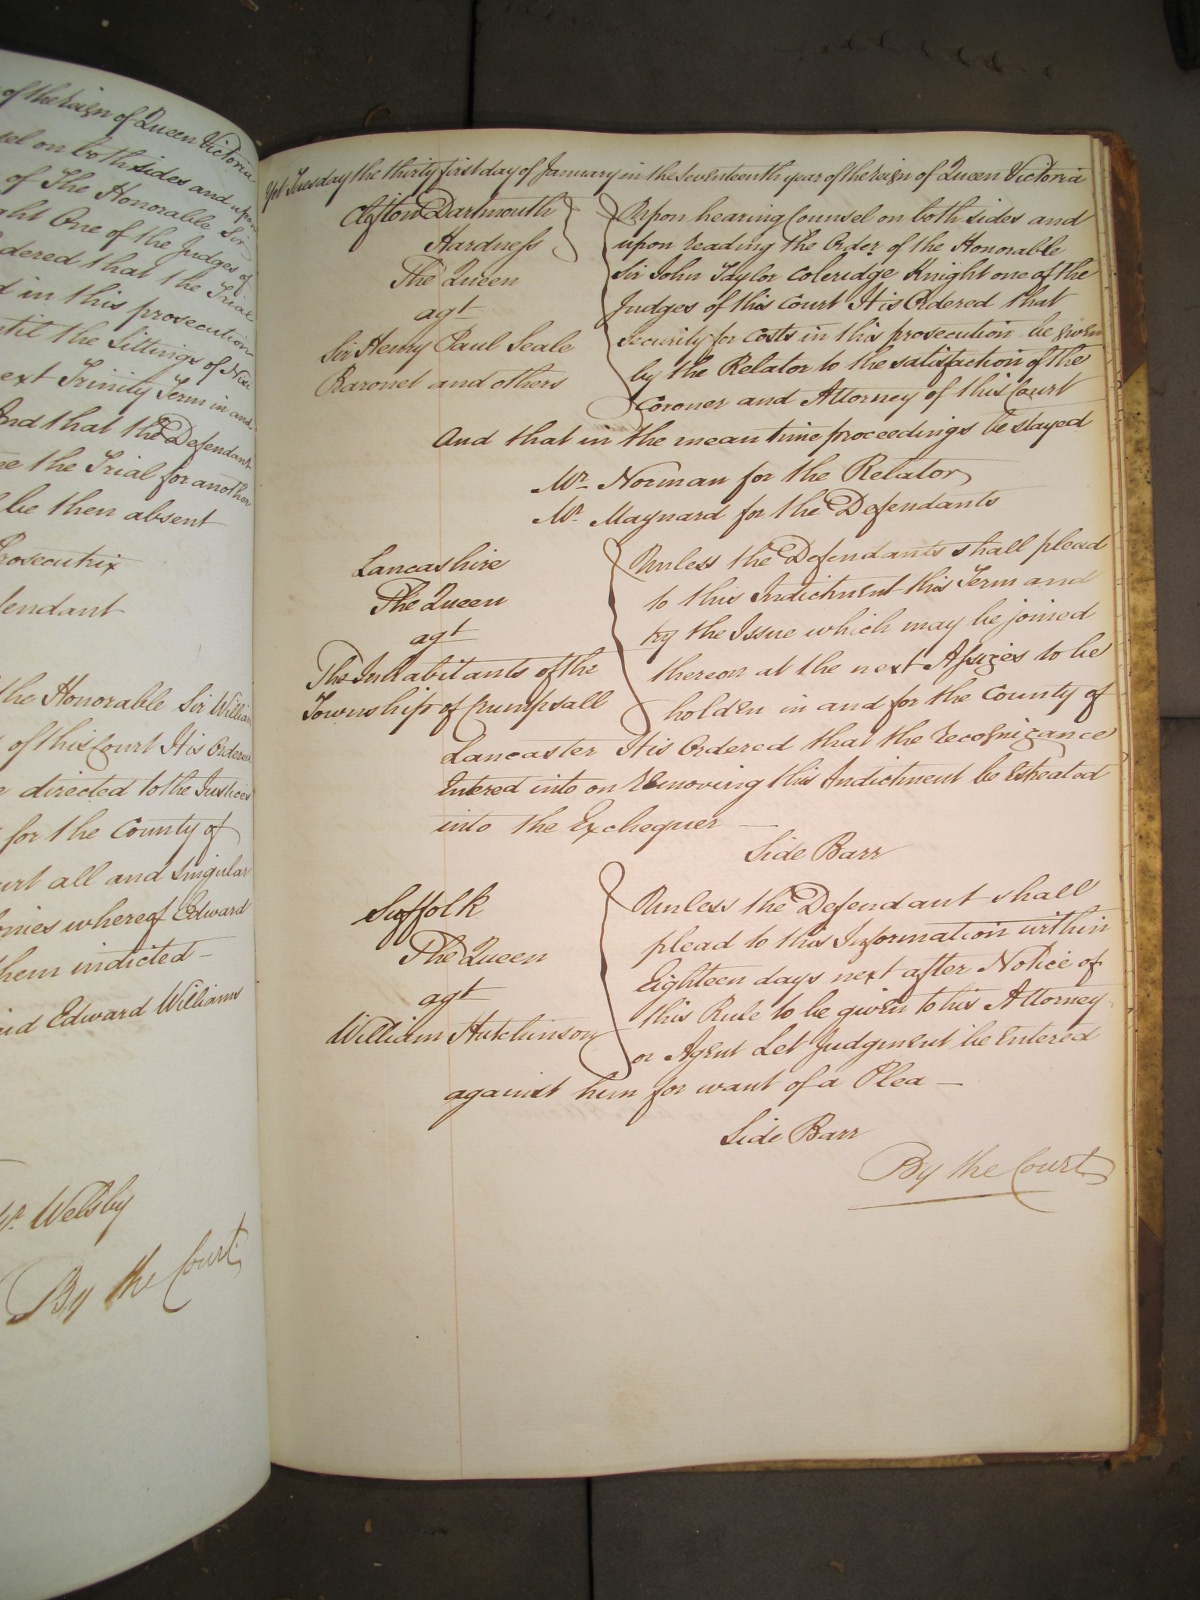 of the Reign of Queen Victoria
sel on both sides and upon
of The Honorable Sir
ght One of the Judges of
dered that the Trial
d in this prosecution
til the Sittings of Nisi
ext Trinity Term in and
And that the Defendant
the Trial for another
be then absent
rosecutrix
fendant
the Honorable Sir William
of this Court It is Ordered
directed to the Justices
for the County of
urt all and Singular
onies whereof Edward
them indicted -
aid Edward Williams
Mr. Welsby
By the Court
Yet Tuesday the thirty first day of January in the Seventeenth year of the Reign of Queen Victoria
Clifton Dartmouth
Hardness
The Queen
agt
Sir Henry Paul Seale
Baronet and others
Upon hearing Counsel on both sides and
upon reading the Order of the Honorable
Sir John Taylor Coleridge Knight one of the
Judges of this Court It is Ordered that
security for costs in this prosecution be given
by the Relator to the satisfaction of the
Coroner and Attorney of this Court
And that in the mean time proceedings be stayed
Mr. Norman for the Relator
Mr. Maynard for the Defendants
Lancashire
The Queen
agt
The Inhabitants of the
Township of Crumpsall
Unless the Defendants shall plead
to this Indictment this Term and
try the Issue which may be joined
thereon at the next Assizes to be
holden in and for the County of
Lancaster It is Ordered that the recognizance
Entered into on removing this Indictment be Estreated
into the Exchequer —
Side Barr
Suffolk
The Queen
agt
William Hutchinson
Unless the Defendant shall
plead to this Information within
Eighteen days next after Notice of
this Rule to be given to his Attorney
or Agent Let Judgment be Entered
against him for want of a Plea —
Side Barr
By the Court